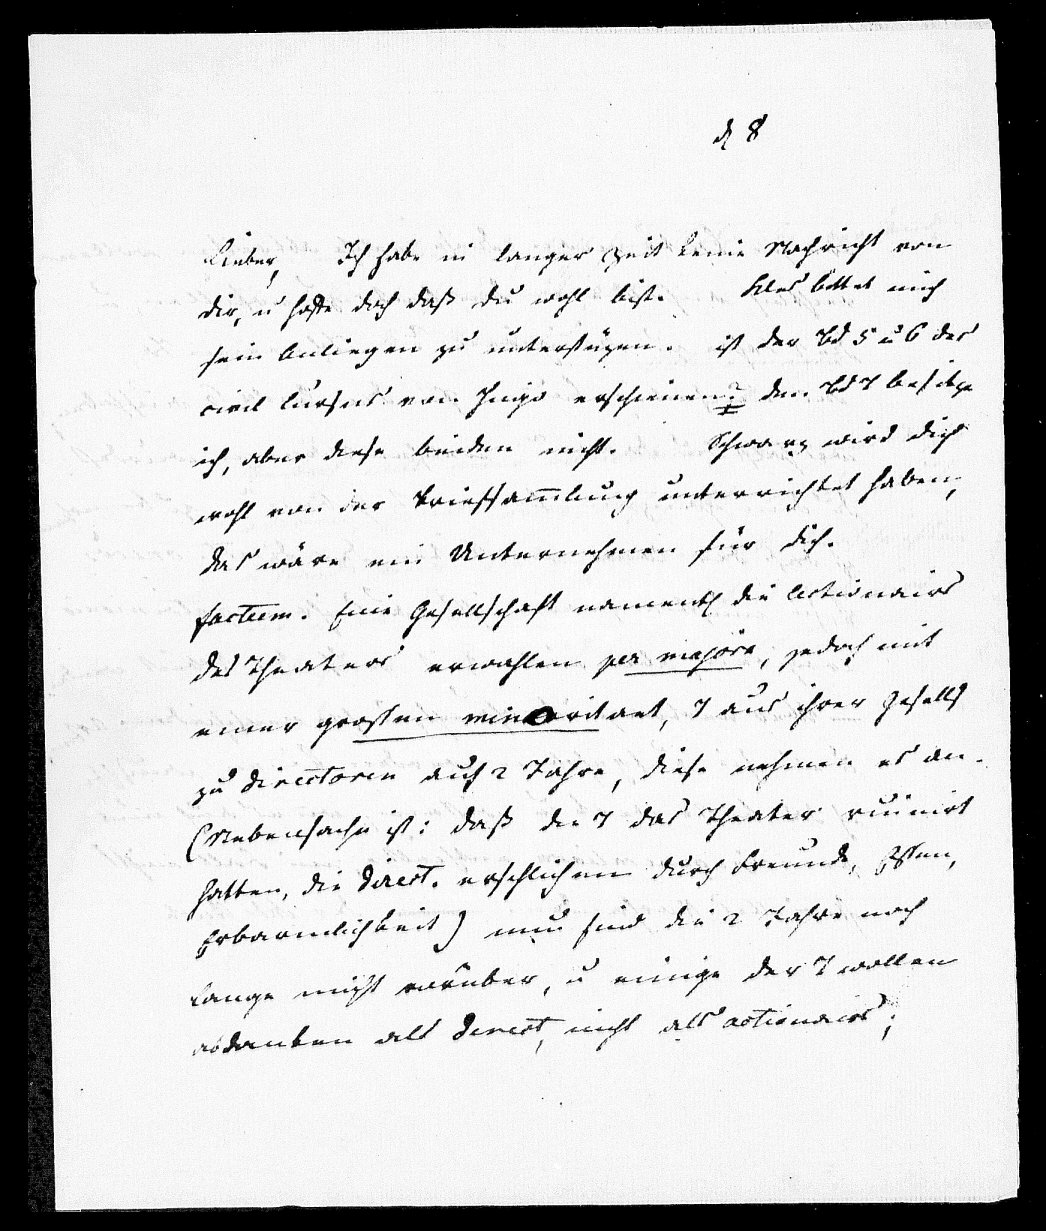 d 8
Lieber, Ich habe in langer Zeit keine Nachricht von
dir, u hoffe doch daß du wohl bist. bittet mich
sein Anliegen zu unterstüzen. ist der Bd 5 u 6 des
civil Cursus von Hugo erschienen? den Bd 7 besitze
ich, aber diese beiden nicht. Schwarz wird dich
wohl von der Briefsam̅lung unterrichtet haben,
das wäre ein Unternehmen für dich.
factum. Eine Gesellschaft namentl die Actionairs
des Theaters erwahlen per majora, jedoch mit
einer grossen minoritaet, 7 aus ihrer Gesells
zu Directoren auf 2 Jahre, diese nehmen es an.
(Nebensache ist: daß die 7 das Theater ruinirt
hatten, die Direct. erschlichen durch Freunde, Essen,
Erbarmlichkeit) nun sind die 2 Jahre noch
lange nicht vorüber, u einige der 7 wollen
abdanken als Direct, nicht als actionairs;